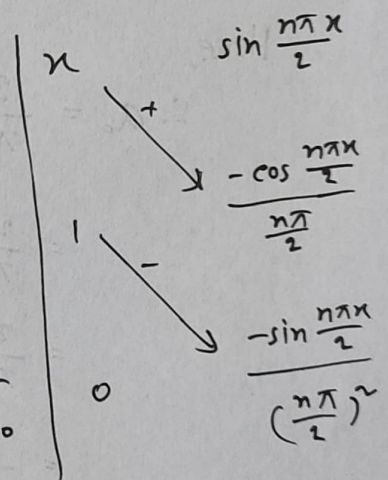 x sin nπx/2
+
-cos nπx/2 / nπ/2
1
-
-sin nπx/2 / (nπ/2)²
0